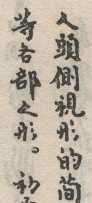 人頭側視形的簡
等各部之形。初